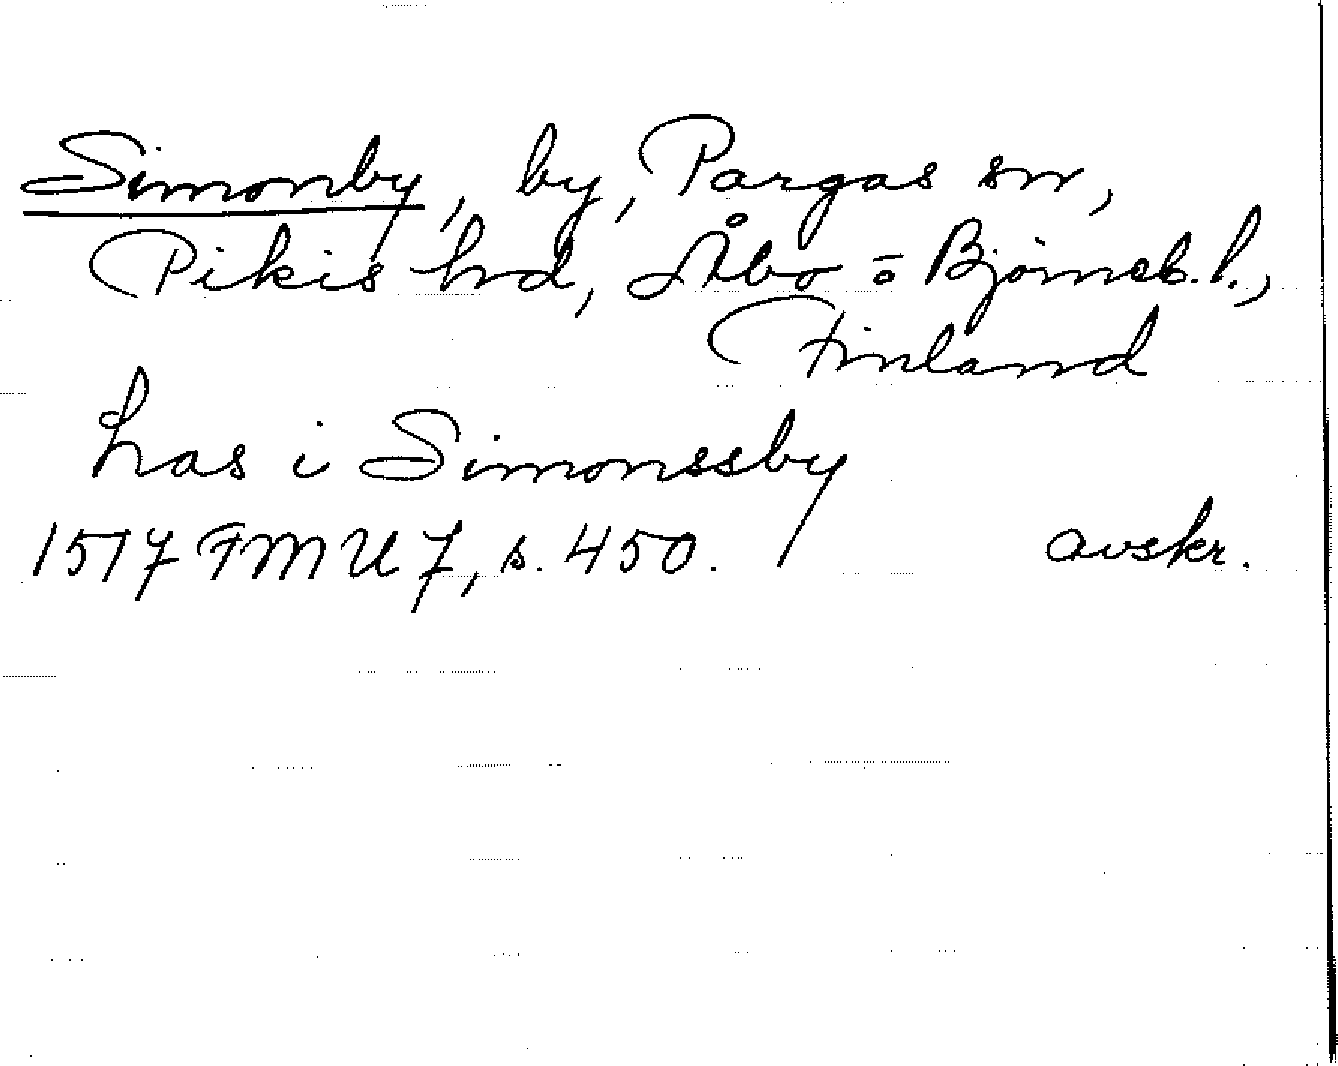 Simonby, by, Pargas sn,
Pikis hd, Åbo o Björneb. l.,
Finland
has i Simonssby
1517 FMU 7, s. 450. avskr.